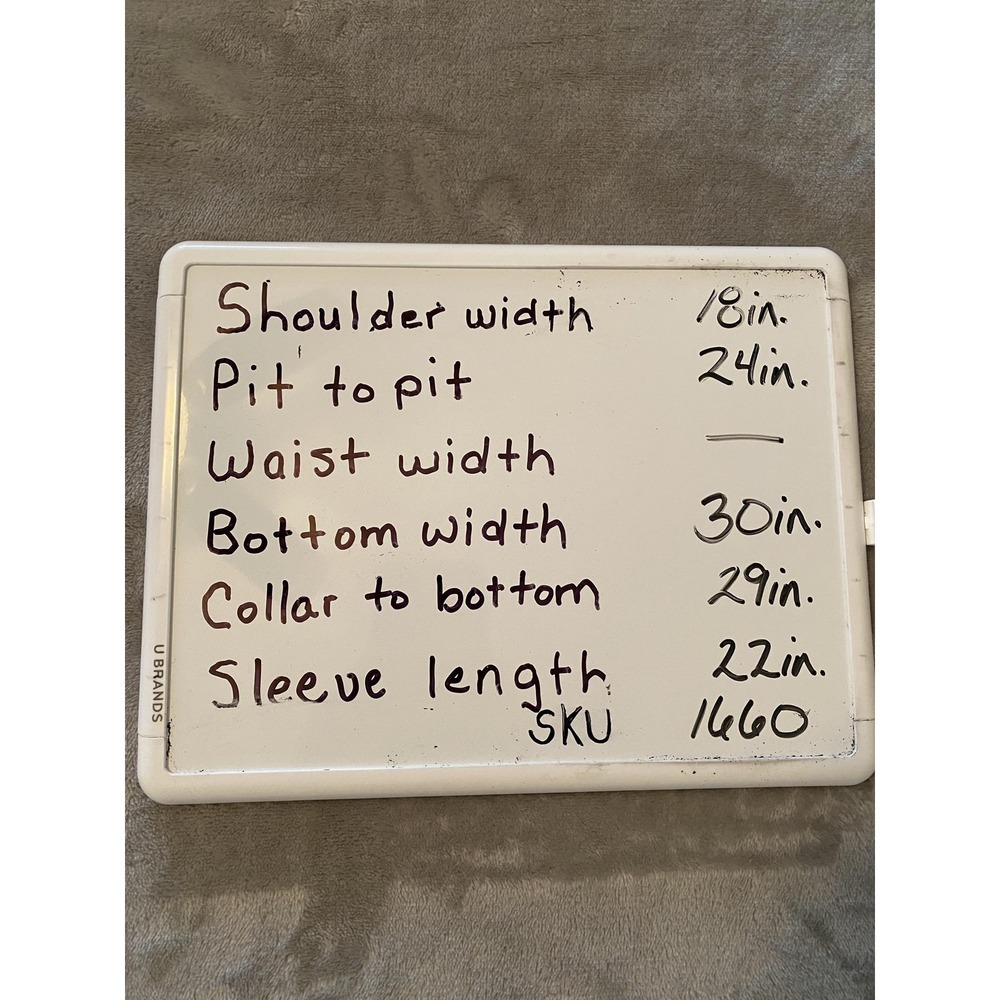 Shoulder width 18in.
Pit to pit 24in.
Waist width —
Bottom width 30in.
Collar to bottom 29in.
Sleeve length 22in.
SKU 1660
U BRANDS